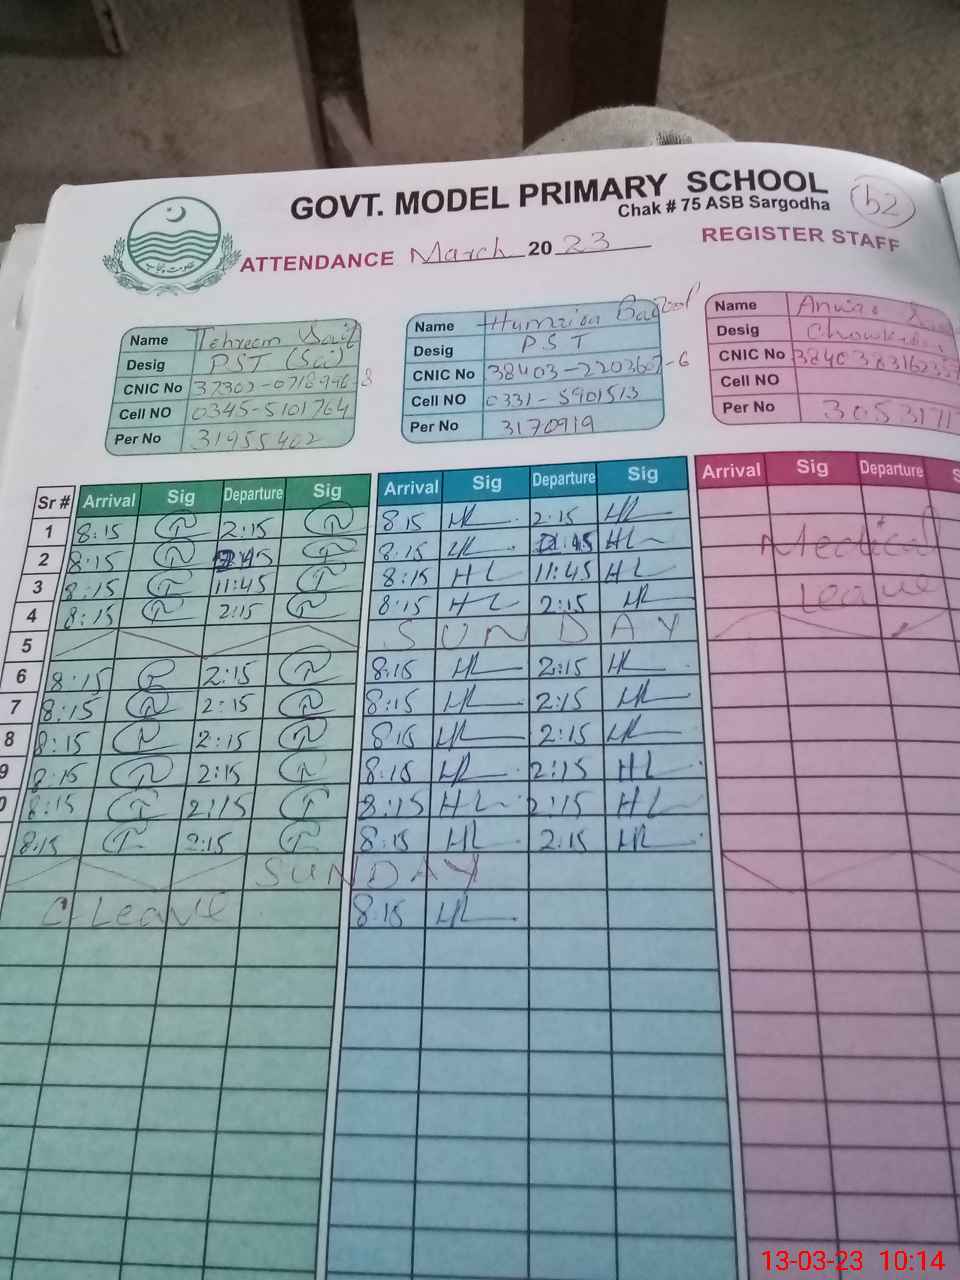 GOVT. MODEL PRIMARY SCHOOL
Chak # 75 ASB Sargodha
62
ATTENDANCE March 2023 REGISTER STAFF
Name Tehreem
Desig PST (Sci)
CNIC No
Cell NO 0345-5101764
Per No 31955402
Name Humaira Batool
Desig P S T
CNIC No 38403-2203607-6
Cell NO 0331-5901513
Per No 3170919
Name
Desig Chowkidar
CNIC No
Cell NO
Per No
Sr # Arrival Sig Departure Sig Arrival Sig Departure Sig Arrival Sig Departure S
1 8:15 2:15 8:15 HL 2:15 HL
2 8:15 8:15 HL HL Medical
3 8:15 11:45 8:15 HL 11:45 HL Leave
4 8:15 2:15 8:15 HL 2:15 HL
5 S U N D A Y
6 8:15 2:15 8:15 HL 2:15 HL
7 8:15 2:15 8:15 HL 2:15 HL
8 8:15 2:15 8:15 HL 2:15 HL
9 8:15 2:15 8:15 HL 2:15 HL
0 8:15 2:15 8:15 HL 2:15 HL
8:15 2:15 8:15 HL 2:15 HL
SUNDAY
C-Leave 8:15 HL
13-03-23 10:14